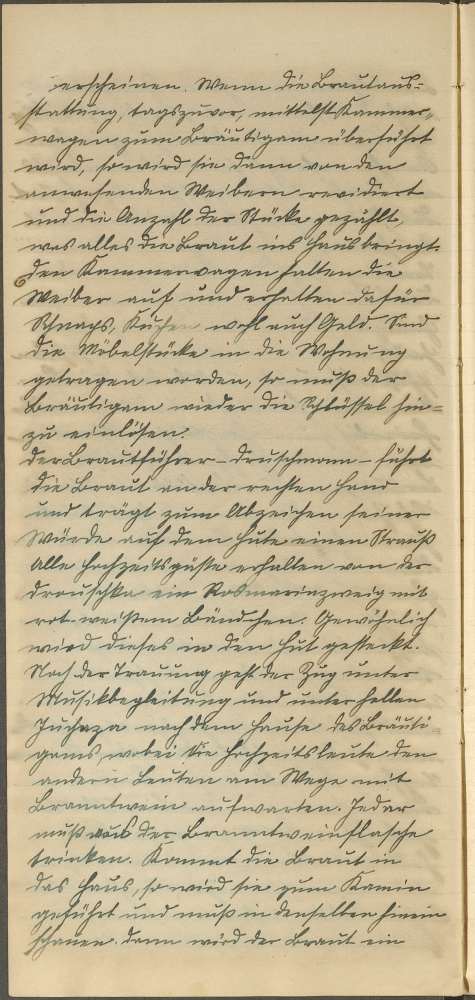 erscheinen. Wenn die Brautaus-
stattung, tagszuvor, mittelst Kammer-
wagen zum Bräutigam überführt
wird, so wird sie dann von den
anwesenden Weibern revidiert
und die Anzahl der Stücke gezählt,
was alles die Braut ins Haus bringt.
Den Kammerwagen halten die
Weiber auf und erhalten dafür
Schnaps, Kuchen wohl auch Geld. Sind
die Möbelstücke in die Wohnung
getragen worden, so muß der
Bräutigam wieder die Schlüssel hin-
zu einlösen.
Der Brautführer – Druschmann – führt
die Braut an der rechten Hand
und trägt zum Abzeichen seiner
Würde auf dem Hute einen Strauß
Alle Hochzeitsgäste erhalten von der
Drouschka ein Rosmarinzweig mit
rot-weißem Bändchen. Gewöhnlich
wird dieses in den Hut gesteckt.
Nach der Trauung geht der Zug unter
Musikbegleitung und unter hellen
Juchaza nach dem Hause des Bräuti-
gams, wobei die Hochzeitsleute den
andern Leuten am Wege mit
Branntwein aufwarten. Jeder
muß aus der Branntweinflasche
trinken. Kommt die Braut in
das Haus, so wird sie zum Kamin
geführt und muß in denselben hinein
schauen. Dann wird der Braut ein